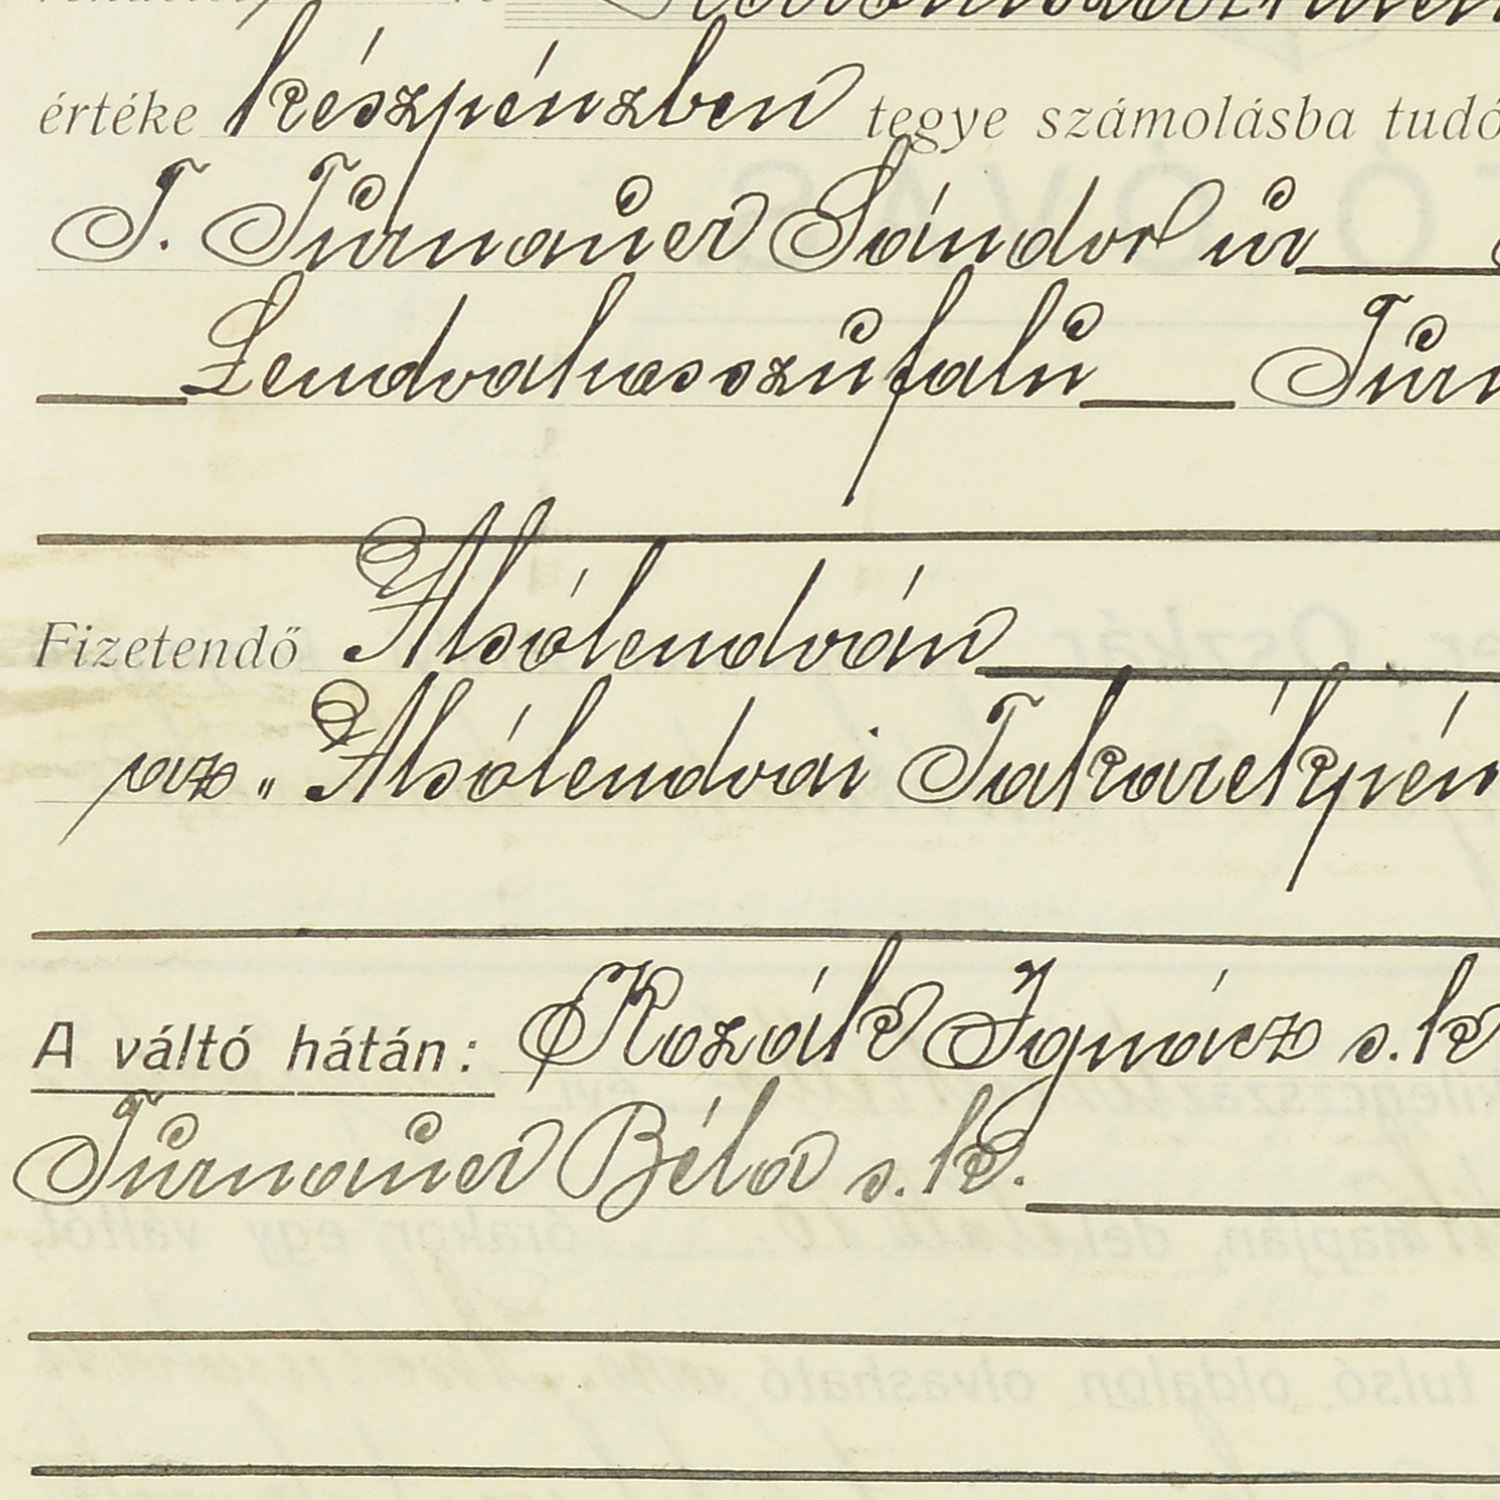 értéke készpénzben tegye számolásba tudó
T. Turnauer Sándor úr
Lendvahosszufalu Turn
Fizetendő Alsólendván
az „Alsólendvai Takarékpén
A váltó hátán: Kozák Ignácz s. k
Turnauer Béla s. k.